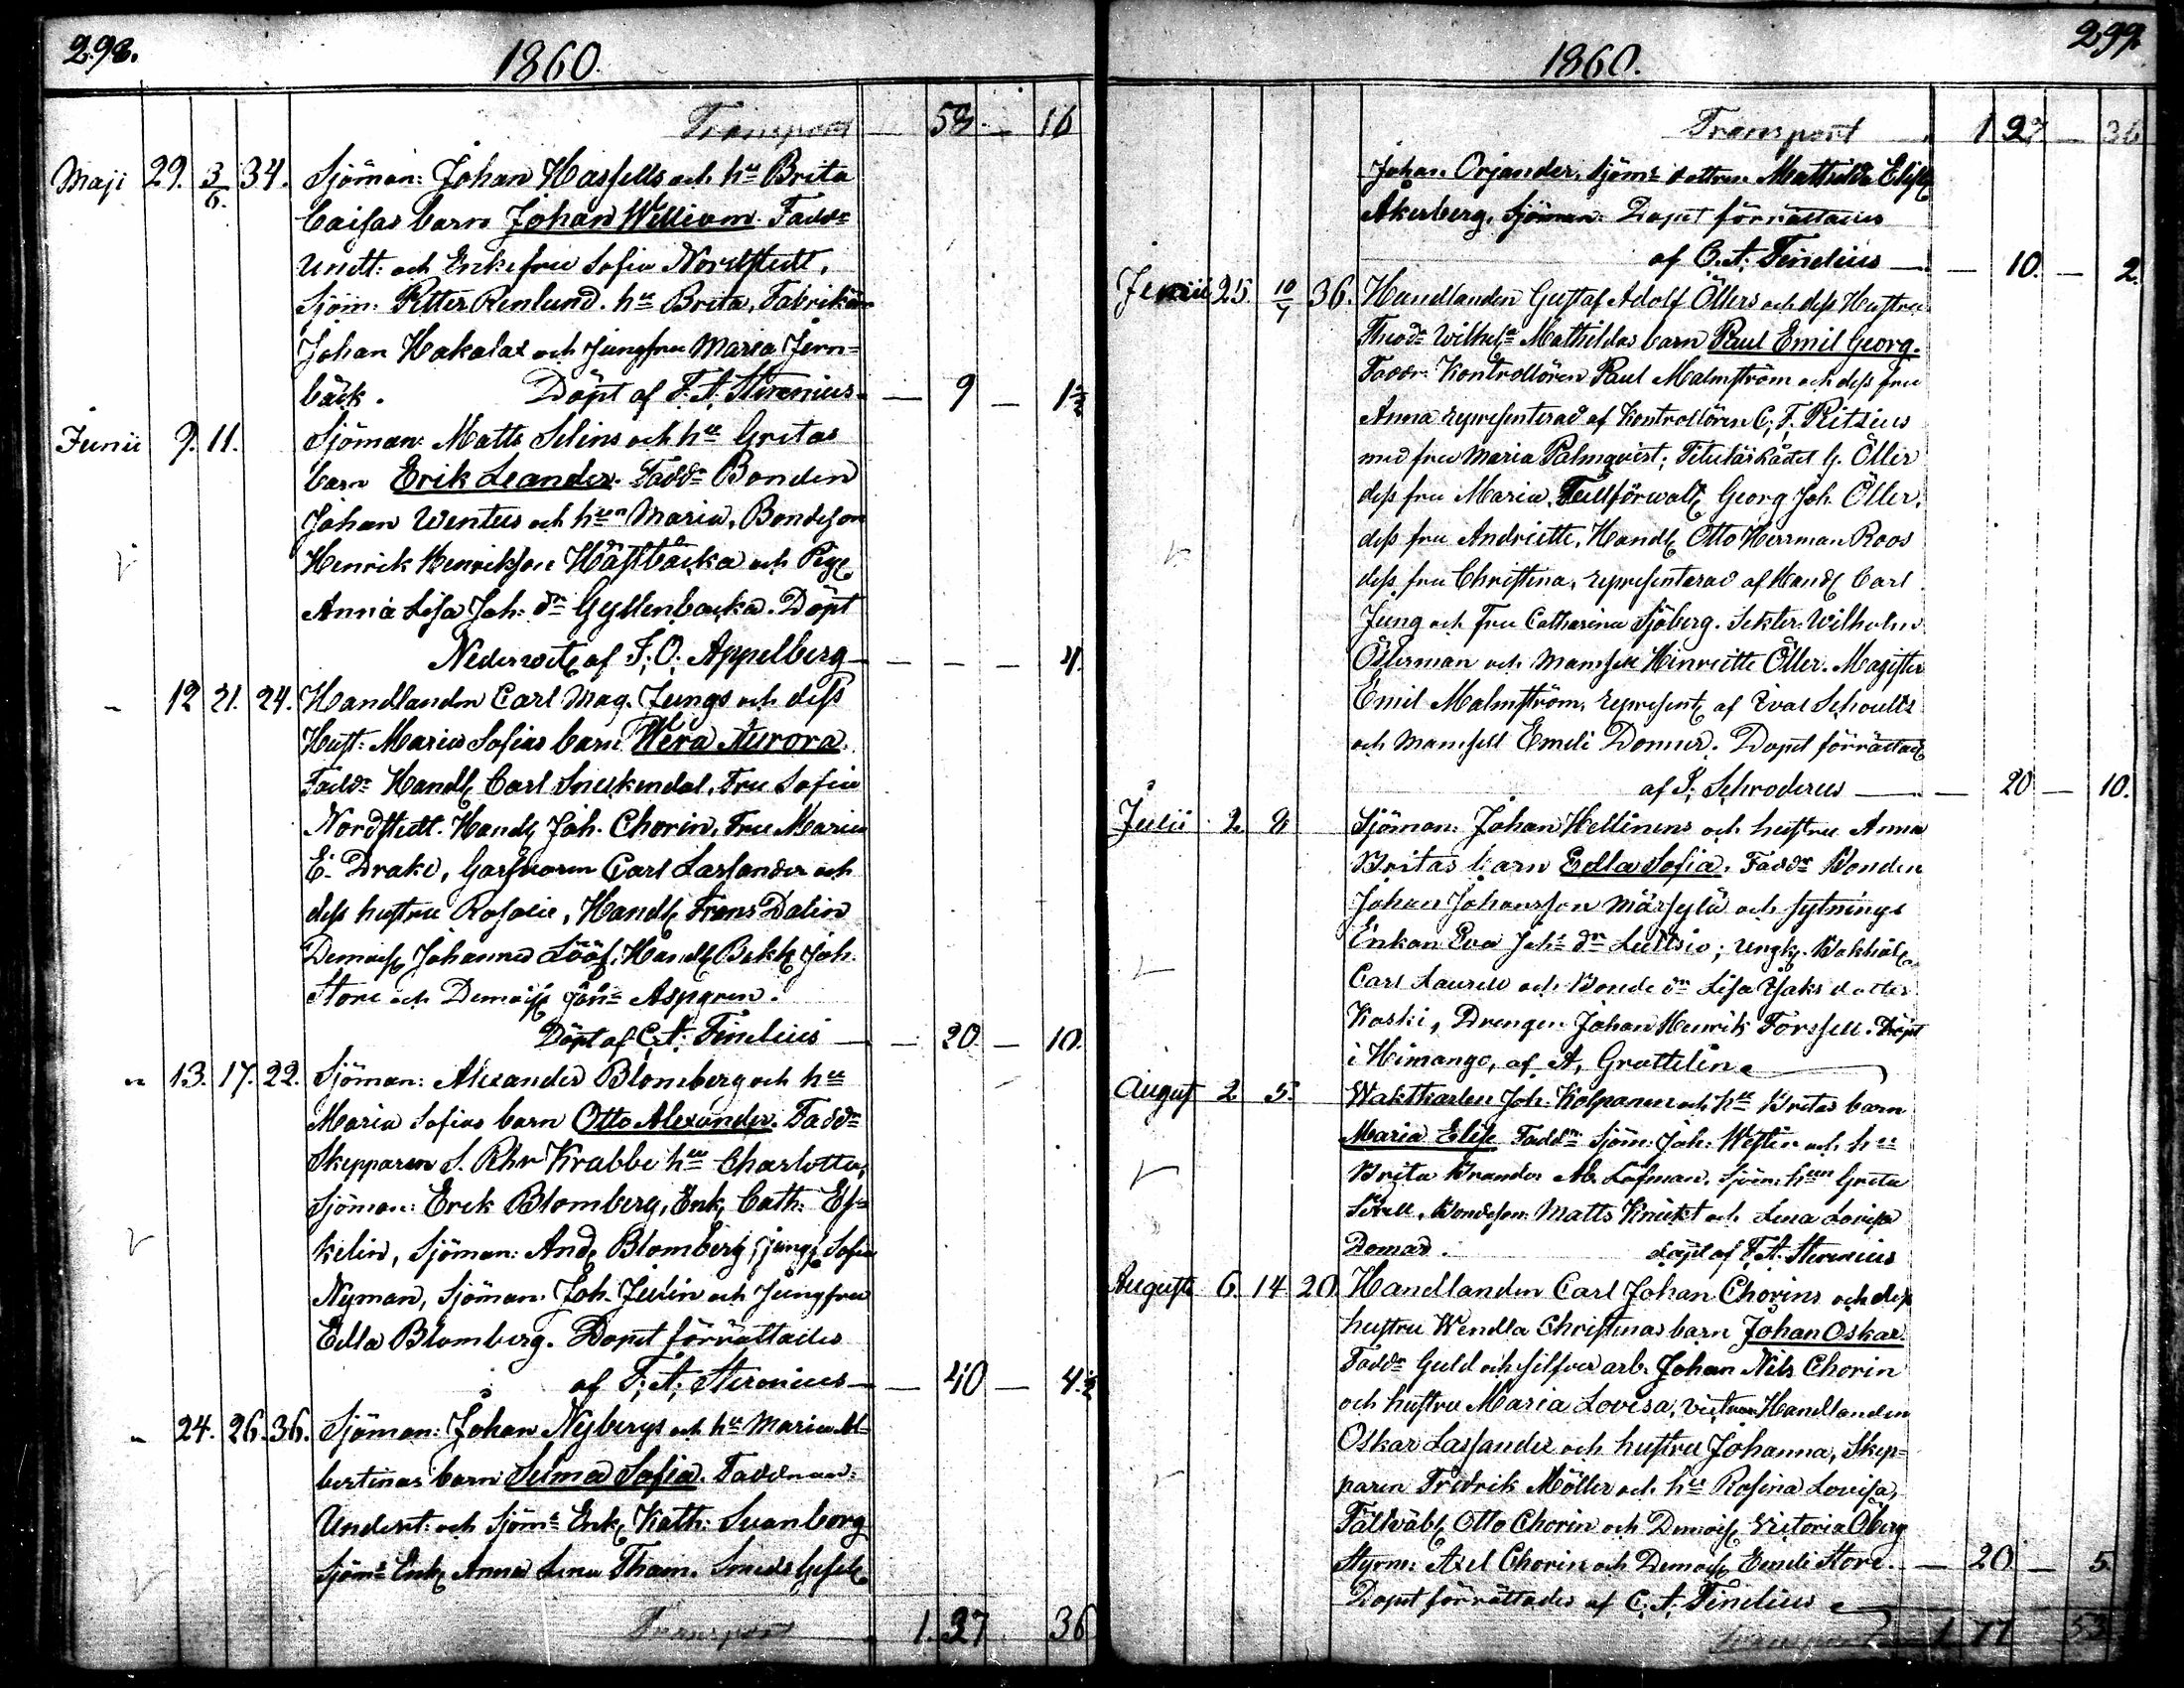 298.
1860.
Transport 58 — 16
Maji 29. 3/6. 34. Sjöman: Johan Hassells och hu Brita
Caisas barn Johan William. Fadd:
Undt: och Enkefru Sofia Nordstedt,
Sjöm: Petter Renlund. hu Brita, Fabrikän
Johan Hakalax och Jungfru Maria Jern-
bäck. Döpt af F. A. Stenius — 9 — 1 1/2
Junii 9. 11. Sjöman: Matts Selins och hu Gretas
barn Erik Leander. Fadd: Bonden
Johan Wentus och hun Maria, Bondeson
Henrik Henriksson Hästbacka och Pig
Anna Lisa Joh: dr Gyllenbacka. Döpt
Nederwet af J. O. Appelberg — — — 4.
" 12 21. 24. Handlanden Carl Mag. Jungs och dess
Hust: Maria Sofias barn Wera Aurora.
Fadd: Handl Carl Snellkendal, Fru Sofia
Nordstedt. Handl Joh. Chorin, Fru Maria
E. Drake, Garfvaren Carl Lassander och
dess hustru Rosalie, Handl Frans Dalin
Demois Johanna Lööf, Handl Bokh Joh.
Store och Demois Joh: Aspgren.
Döpt af C. A. Finelius — 20 — 10.
" 13. 17. 22. Sjöman: Alexander Blomberg och hu
Maria Sofias barn Otto Alexander. Fadd:
Skepparen S. Krabbe hu Charlotta,
Sjöman: Erik Blomberg, Enk Cath: Es-
kelin, Sjöman: And Blomberg, jungf Sofia
Nyman, Sjöman: Joh. Julin och Jungfru
Edla Blomberg. Dopet förrättades
af F. A. Stenius — 40 — 4 1/2
" 24. 26. 36. Sjöman: Johan Nybergs och hu Maria Al-
bertinas barn Selma Sofia. Faddrar:
Undert: och Sjöm: Enk Kath: Svanborg
Sjöm: Enk Anna Lena Tham. Smeds Gesäl
Transport 1. 37 36
299.
1860.
Transport 1 27 — 36
Johan Orjander, Sjöms dottren Mathilda Elis
Åkerberg, Sjöman: Dopet förrättades
af C. A. Finelius — 10. — 2.
Junii 25. 10/7 36. Handlanden Gustaf Adolf Öllers och dess Hustru
Theod: Wilhel: Mathildas barn Paul Emil Georg.
Faddr: Kontrollören Paul Malmström och dess fru
Anna representerad af Kontrollören C. F. Ritzius
med fru Maria Palmqvist; Titulärrådet G. Öller
dess fru Maria, Tullförwalt Georg Joh. Öller,
dess fru Andriette, Handl Otto Herrman Roos
dess fru Christina, representerad af Handl Carl
Jung och Fru Catharina Sjöberg. Sekter: Wilhelm
Österman och Mamsell Hinriette Öller. Magister
Emil Malmström, represent af Schoultz
och Mamsell Emeli Donner. Dopet förrättad
af P. Schroderus — 20 — 10.
Julii 2. 8 Sjöman: Johan Hellinens och hustru Anna
Britas barn Edla Sofia. Faddr Bonden
Johan Johansson Märsylä och sytnings
Enkan Eva Joh: dr Luttsio; Ungk. Bokhål
Carl Laurell och Bonde dr Lisa Isaksdotter
Koski, Drengen Johan Henrik Forssell. Döpt
i Himango, af A. Grattelin
August 2 5. Waktkarlen Joh. Kolpanen och hu Britas barn
Maria Elise Faddr Sjöm: Joh: Westin och hu
Brita Brander M. Löfman, Sjöm: hun Greta
Bondeson Matts Knickt och Lena Lovisa
Domar. döpt af F. A. Stenius
Augusti 6. 14 20. Handlanden Carl Johan Chorins och dess
hustru Wendla Christinas barn Johan Oskar.
Faddr Guld och silfver arb. Johan Nils Chorin
och hustru Maria Lovisa, Handlanden
Oskar Lassander och hustru Johanna, Skep-
paren Fredrik Möller och hu Rosina Lovisa,
Fältväbl Otto Chorin och Demois Victoria Öberg
Styrm: Axel Chorin och Demois Emeli Store. — 20 — 5.
Dopet förrättades af C. A. Finelius
Transport 1 77 53